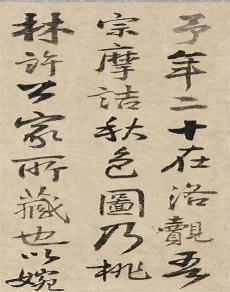 予年二十在洛觀吾
宗摩詰秋色圖乃桃
林許公家所藏也以婉